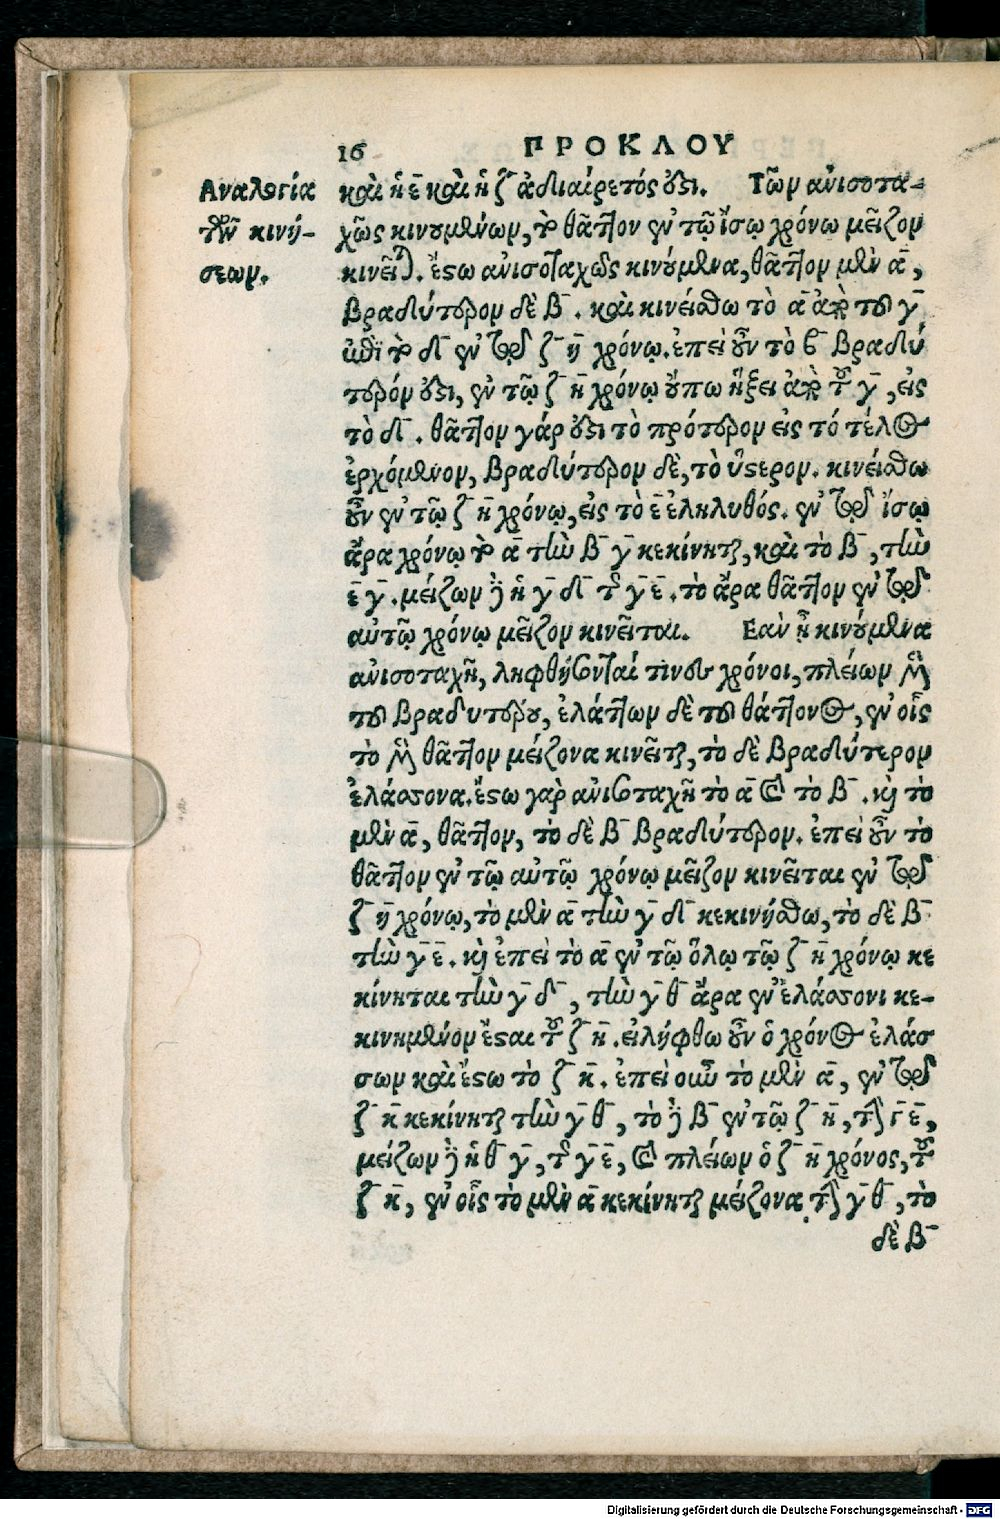 16 ΠΡΟΚΛΟΥ
Αναλογία
τῶν κινή-
σεων.
καὶ ἡ ε̄ καὶ ἡ ζ̄ ἀδιαίρετός ἐστι. Τῶν ἀνισοτα-
χῶς κινουμένων, τὸ θᾶττον ἐν τῷ ἴσῳ χρόνῳ μεῖζον
κινεῖται. ἔστω ἀνισοταχῶς κινούμενα, θᾶττον μὲν ᾱ,
βραδύτερον δὲ β̄. καὶ κινείσθω τὸ ᾱ ἀπὸ τοῦ γ̄
ἐπὶ τὸ δ̄ ἐν τῷ ζ̄ η̄ χρόνῳ. ἐπεὶ οὖν τὸ β̄ βραδύ
τερόν ἐστι, ἐν τῷ ζ̄ η̄ χρόνῳ οὔπω ἥξει ἀπὸ τοῦ γ̄, εἰς
τὸ δ̄. θᾶττον γάρ ἐστι τὸ πρότερον εἰς τό τέλος
ἐρχόμενον, βραδύτερον δὲ, τὸ ὕστερον. κινείσθω
οὖν ἐν τῷ ζ̄ η̄ χρόνῳ, εἰς τὸ ε̄ ἐληλυθός. ἐν τῷ ἴσῳ
ἄρα χρόνῳ τὸ ᾱ τὴν β̄ γ̄ κεκίνηται, καὶ τὸ β̄, τὴν
ε̄ γ̄. μείζων δὲ ἡ γ̄ δ̄ τῆς γ̄ ε̄. τὸ ἄρα θᾶττον ἐν τῷ
αὐτῷ χρόνῳ μεῖζον κινεῖται. Εαν ᾖ κινούμενα
ἀνισοταχῆ, ληφθήσονταί τινες χρόνοι, πλείων μὲν
τοῦ βραδυτέρου, ἐλάττων δὲ τοῦ θάττονος, ἐν οἷς
τὸ μὲν θᾶττον μείζονα κινεῖται, τὸ δὲ βραδύτερον
ἐλάσσονα. ἔστω γὰρ ἀνισοταχῆ τὸ ᾱ καὶ τὸ β̄. καὶ τὸ
μὲν ᾱ, θᾶττον, τὸ δὲ β̄ βραδύτερον. ἐπεὶ οὖν τὸ
θᾶττον ἐν τῷ αὐτῷ χρόνῳ μεῖζον κινεῖται ἐν τῷ
ζ̄ η̄ χρόνῳ, τὸ μὲν ᾱ τὴν γ̄ δ̄ κεκινήσθω, τὸ δὲ β̄
τὴν γ̄ ε̄. καὶ ἐπεὶ τὸ ᾱ ἐν τῷ ὅλῳ τῷ ζ̄ η̄ χρόνῳ κε
κίνηται τὴν γ̄ δ̄, τὴν γ̄ θ̄ ἄρα ἐν ἐλάσσονι κε-
κινημένον ἔσται τοῦ ζ̄ η̄. εἰλήφθω οὖν ὁ χρόνος ἐλάσ
σων καὶ ἔστω τὸ ζ̄ κ̄. ἐπεὶ οὖν τὸ μὲν ᾱ, ἐν τῷ
ζ̄ κ̄ κεκίνηται τὴν γ̄ θ̄, τὸ δὲ β̄ ἐν τῷ ζ̄ η̄, τὴν γ̄ ε̄,
μείζων δὲ ἡ θ̄ γ̄, τῆς γ̄ ε̄, καὶ πλείων ὁ ζ̄ η̄ χρόνος, τοῦ
ζ̄ κ̄, ἐν οἷς τὸ μὲν ᾱ κεκίνηται μείζονα τὴν γ̄ θ̄, τὸ
δὲ β̄
Digitalisierung gefördert durch die Deutsche Forschungsgemeinschaft - DFG